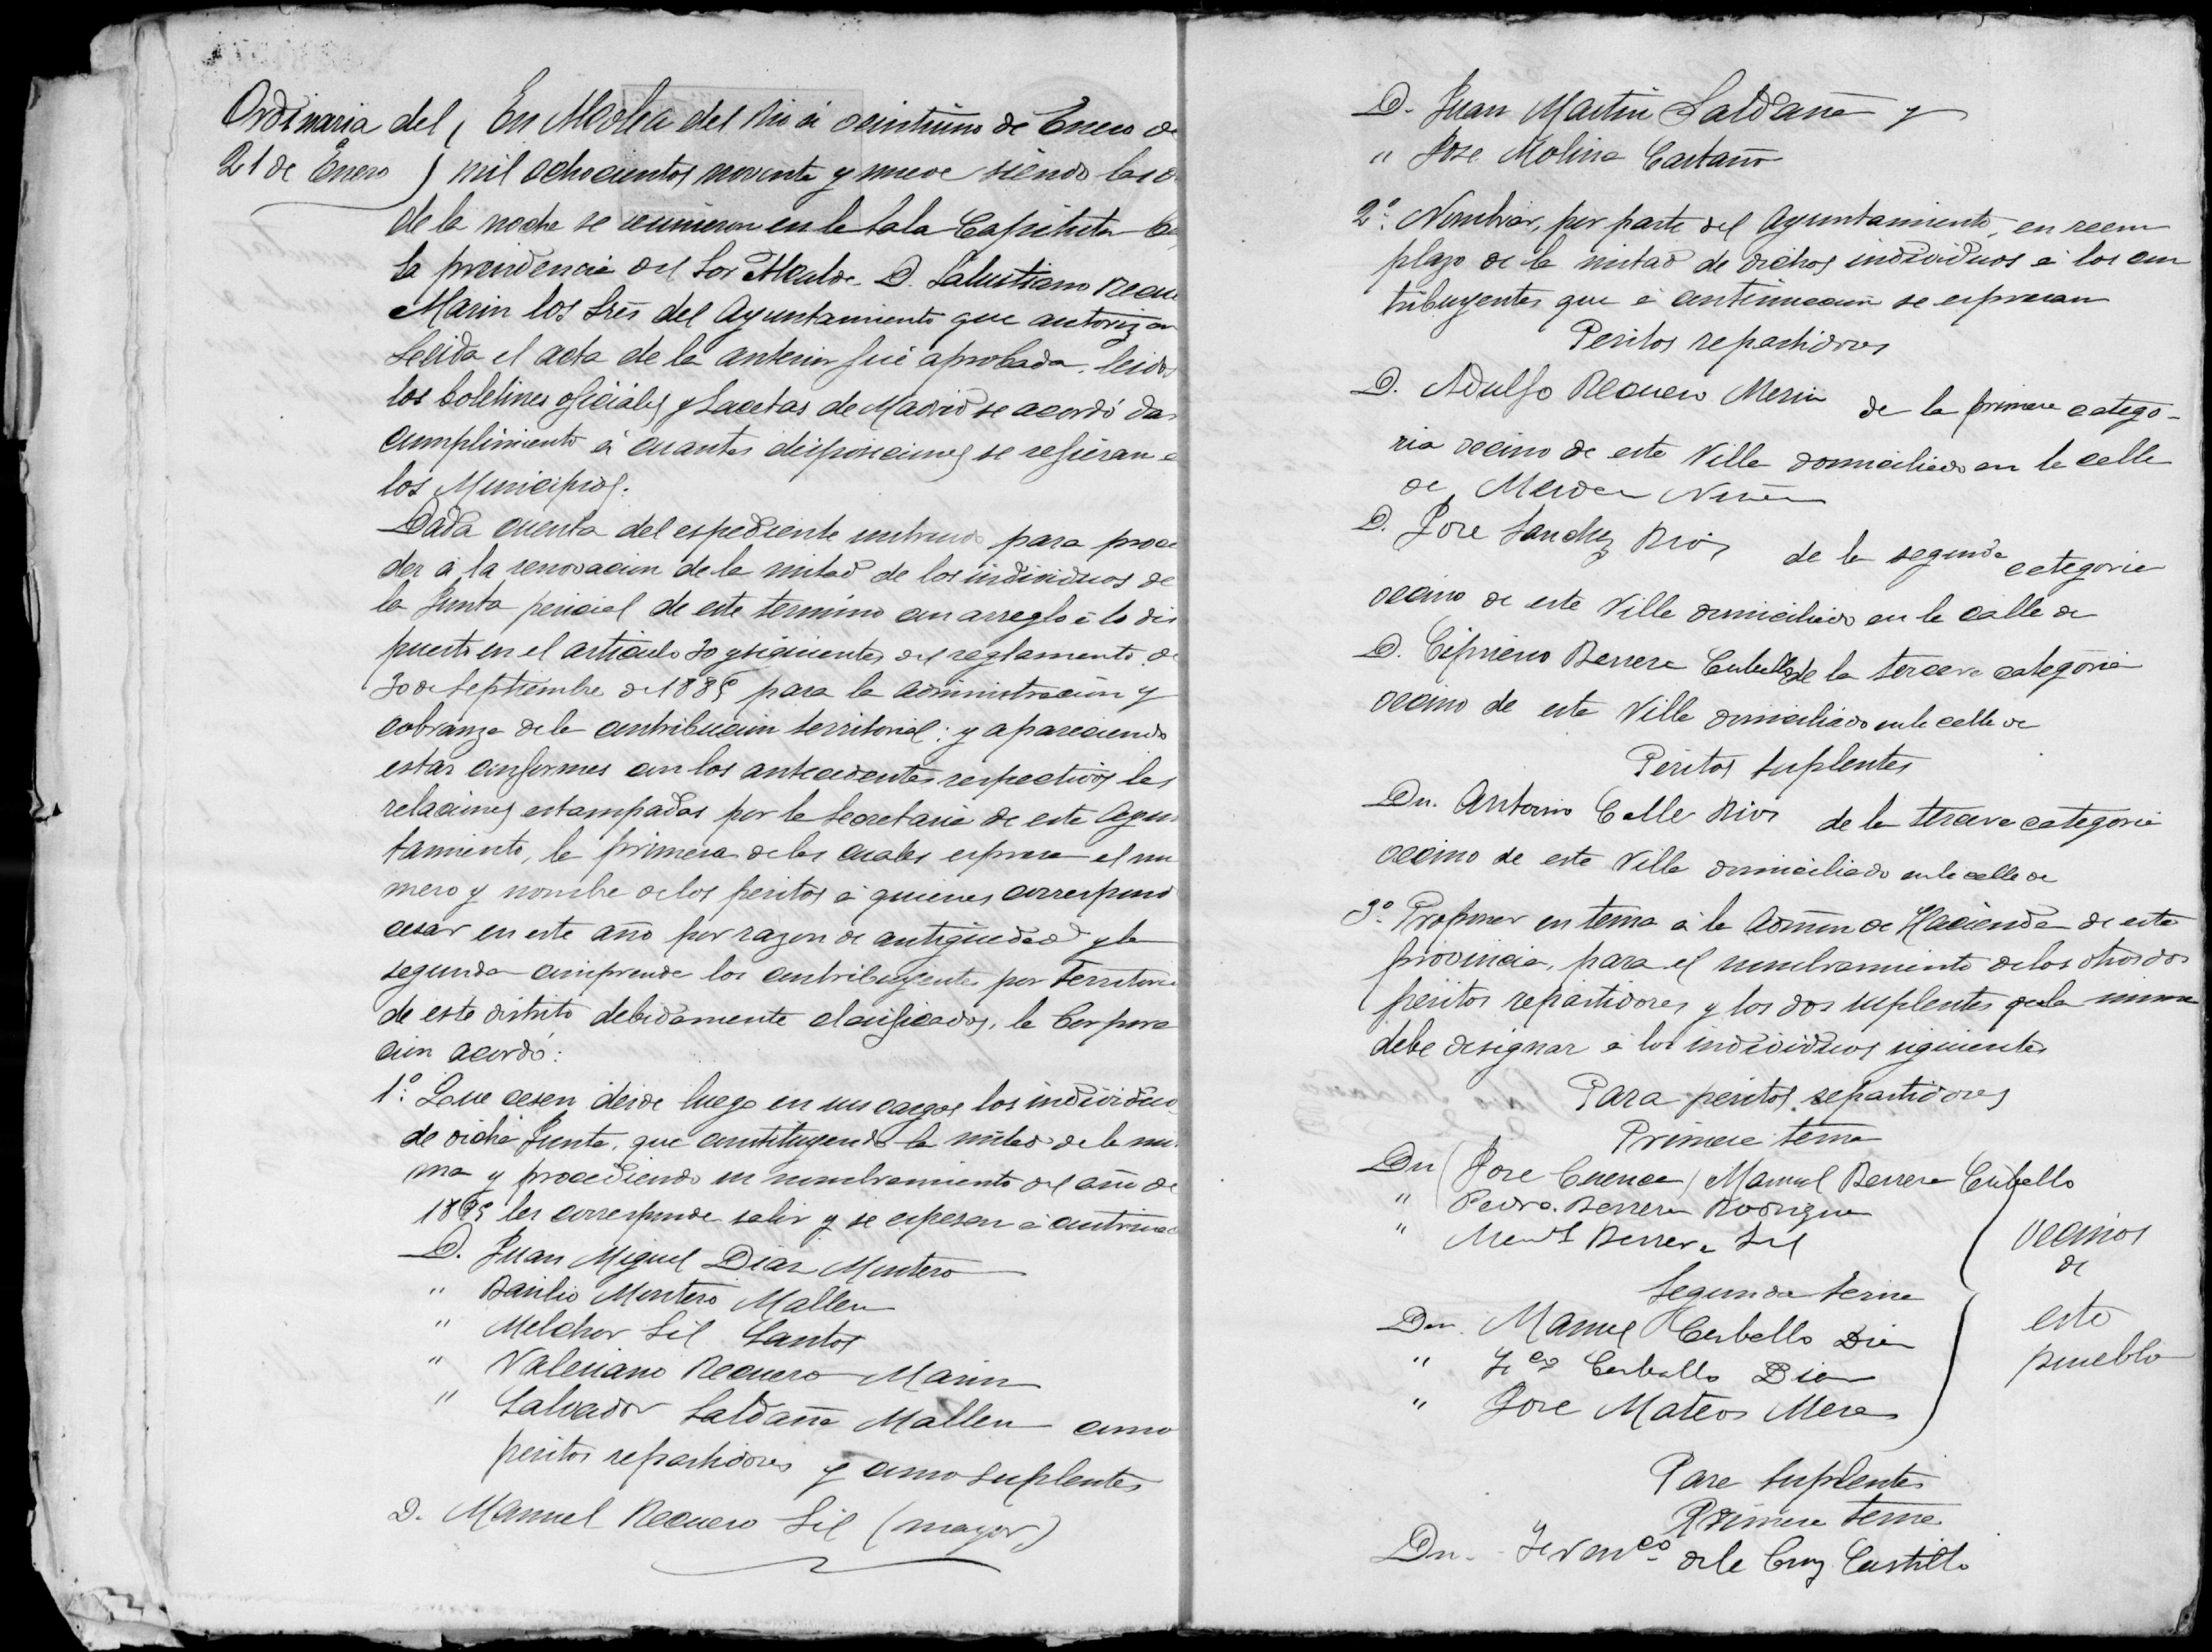 Ordinaria del
21 de Enero
En Alcolea del Rio á veintiuno de Enero de
mil ochocientos noventa y nueve siendo las
de la noche se reunieron en la Sala Capitular
la presidencia del Sor Alcalde D. Salustiano Recue
Marin los Sres del Ayuntamiento que autorizan
Leida el acta de la anterior fué aprobada. leidos
los boletines oficiales y Gacetas de Madrid se acordó dar
cumplimiento á cuantas disposiciones se refieran á
los Municipios.
Dada cuenta del espediente instruido para proce
der á la renovacion de la mitad de los individuos de
la Junta pericial de este termino con arreglo á lo dis
puesto en el articulo 30 y siguientes del reglamento de
30 de Septiembre de 1885 para la administracion y
cobranza de la contribucion territorial: y apareciendo
estar conformes con los antecedentes respectivos las
relaciones estampadas por la Secretaria de este Ayun
tamiento, la primera de las cuales espresa el nu
mero y nombre de los peritos á quienes corresponde
cesar en este año por razon de antigüedad y la
segunda comprende los contribuyentes por Territorial
de este distrito debidamente clasificados, la Corpora
cion acordó:
1º. Que cesen desde luego en sus cargos los individuos
de dicha Junta, que constituyendo la mitad de la mis
ma y procediendo su nombramiento del año de
1895 les corresponde salir y se espresan á continuac
D. Juan Miguel Diaz Montero
" Basilio Montero Mallen
" Melchor Gil Santos
" Valeriano Recuero Marin
" Salvador Saldaña Mallen como
peritos repartidores y como suplentes
D. Manuel Recuero Gil (mayor)
D. Juan Martin Saldaña y
" Jose Molina Castaño
2º. Nombrar, por parte del Ayuntamiento, en reem
plazo de la mitad de dichos individuos á los con
tribuyentes que á continuacion se espresan
Peritos repartidores
D. Adolfo Recuero Marin de la primera catego-
ria vecino de esta Villa domiciliado en la calle
de Nuñez
D. Jose Sanchez Rios de la segunda categoria
vecino de esta Villa domiciliado en la calle de
D. Cipriano Barrera Carballo de la tercera categoria
vecino de esta Villa domiciliado en la calle de
Peritos suplentes
Dn. Antonio Calle Rios de la tercera categoria
vecino de esta Villa domiciliado en la calle de
3º. Proponer en terna á la Admon de Hacienda de esta
provincia, para el nombramiento de los otros dos
peritos repartidores y los dos suplentes que la misma
debe designar á los individuos siguientes
Para peritos repartidores
Primera terna
Dn (Jose Cuenca) Manuel Barrera Carballo
" Pedro Barrera Rodriguez
" Manl Barrera Gil
Segunda terna
Dn. Manuel Carballo Dias
" Fco Carballo Dias
" Jose Mateos Mera
vecinos
de
este
pueblo
Para Suplentes
Primera terna
Dn. Franco de la Cruz Castillo